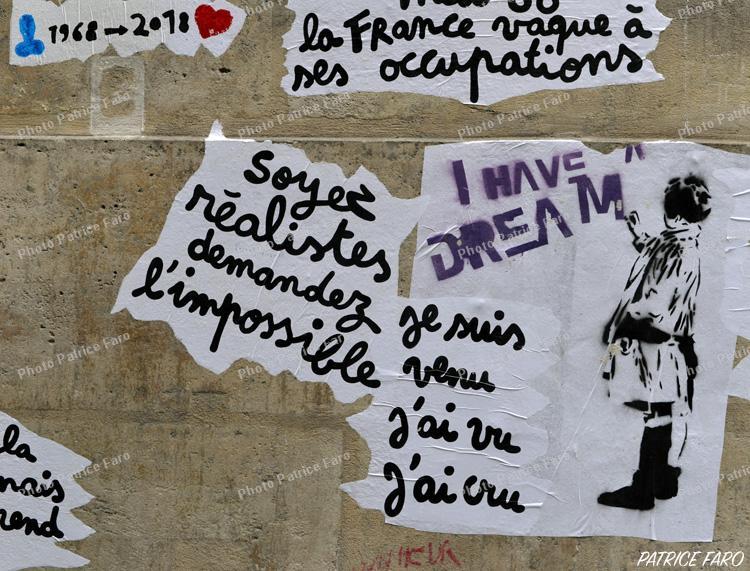 1968→2018
la France vague à
ses occupations
Soyez
réalistes
demandez
l'impossible
I HAVE "
DREAM
je suis
venu
j'ai vu
j'ai cru
la
mais
rend
PATRICE FARO
Photo Patrice Faro